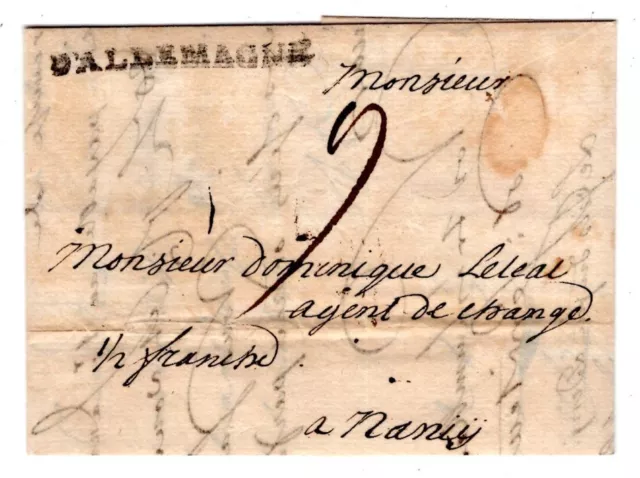 D'ALLEMAGNE
Monsieur
9
Monsieur Dominique Leleal
agent de change
1/2 franche
a Nancÿ